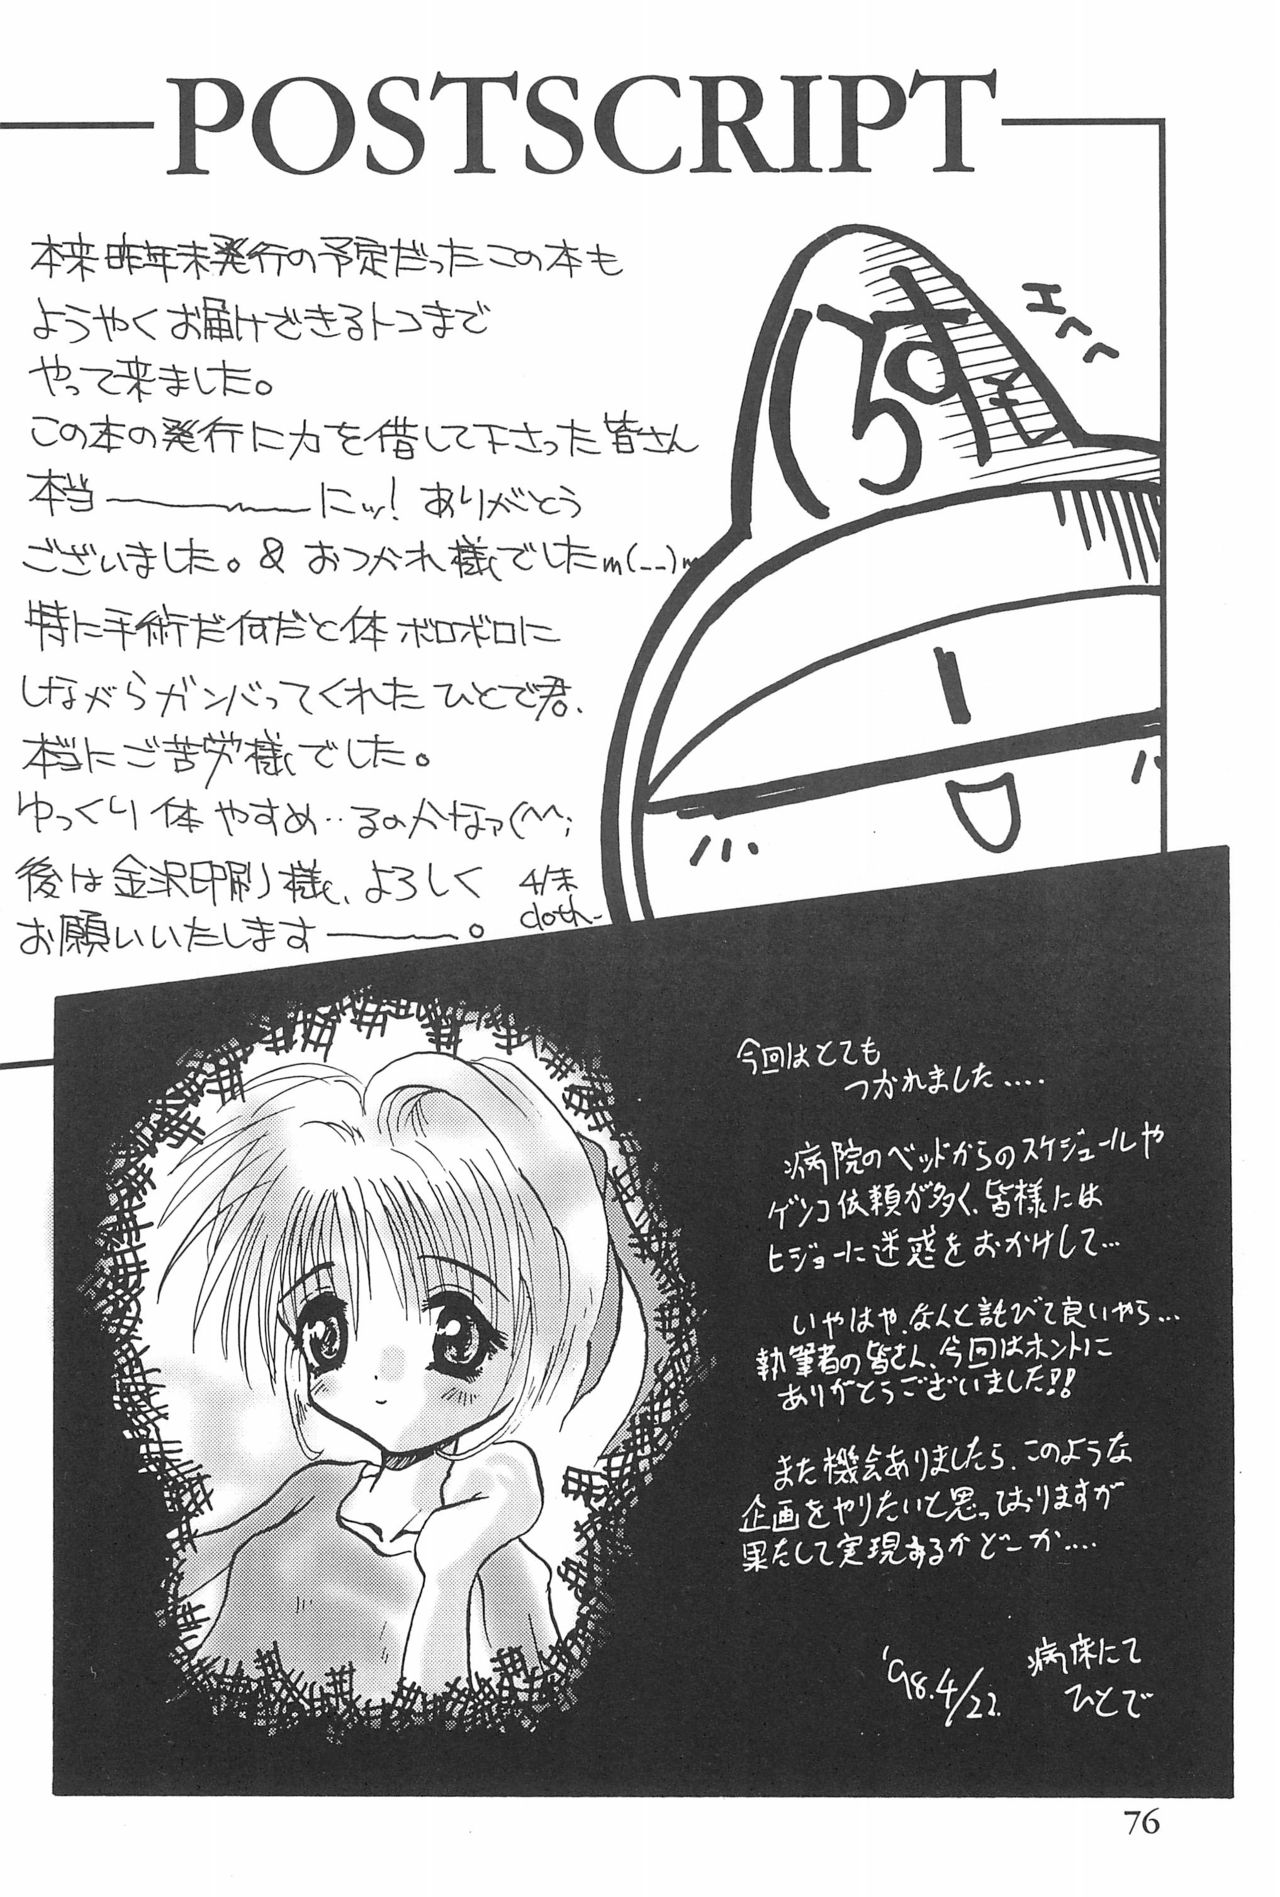 POSTSCRIPT
本来昨年末発行の予定だったこの本も
ようやくお届けできるトコまで
やって来ました。
この本の発行に力を借して下さった皆さん
本当――――にッ! ありがとう
ございました。& おつかれ様でしたm(__)m
特に手術だ何だと体ボロボロに
しながらガンバってくれたひとで君、
本当にご苦労様でした。
ゆっくり体やすめ‥るのかなァ(^^;
後は金沢印刷様、よろしく
お願いいたします――――。
4/末
cloth-
エへへ
今回はとても
つかれました....
病院のベッドからのスケジュールや
ゲンコ依頼が多く、皆様には
ヒジョーに迷惑をおかけして...
いやはや、なんと詫びて良いやら...
執筆者の皆さん、今回はホントに
ありがとうございました!!
また機会ありましたら、このような
企画をやりたいと思っておりますが
果たして実現するかどーか....
'98.4/22.
病床にて
ひとで
76